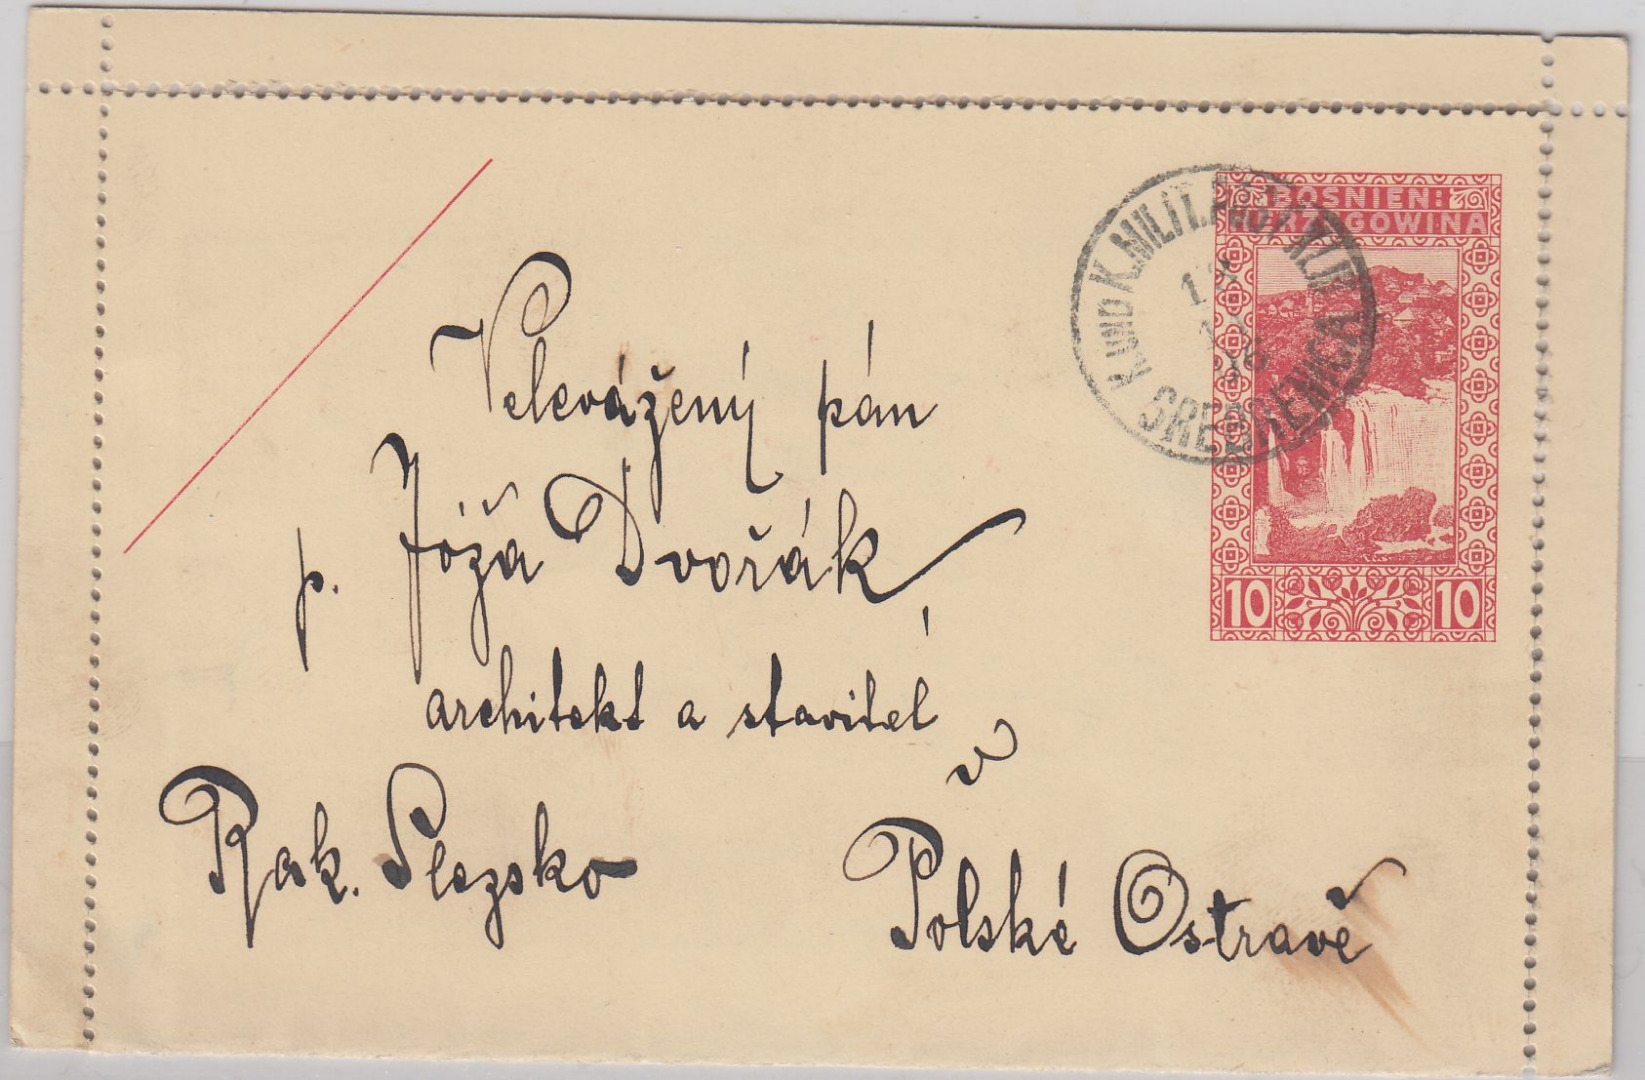 BOSNIEN:
HERZEGOWINA
K.UND K.MILIT.POST
SREBRENICA
10 10
Velevážený pán
p. Jóža Dvořák
architekt a stavitel
v
Rak. Slezsko
Polské Ostravě